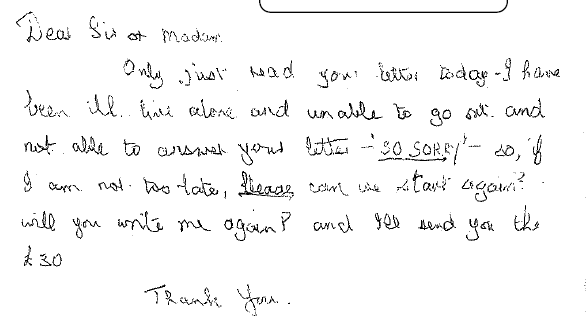 Dear Sir or Madam
Only just read your letter today - I have
been ill. live alone and unable to go out. and
not able to answer your letter - "SO SORRY" - so, if
I am not too late, Please can we start again?
will you write me again? and I'll send you the
£30
Thank You.